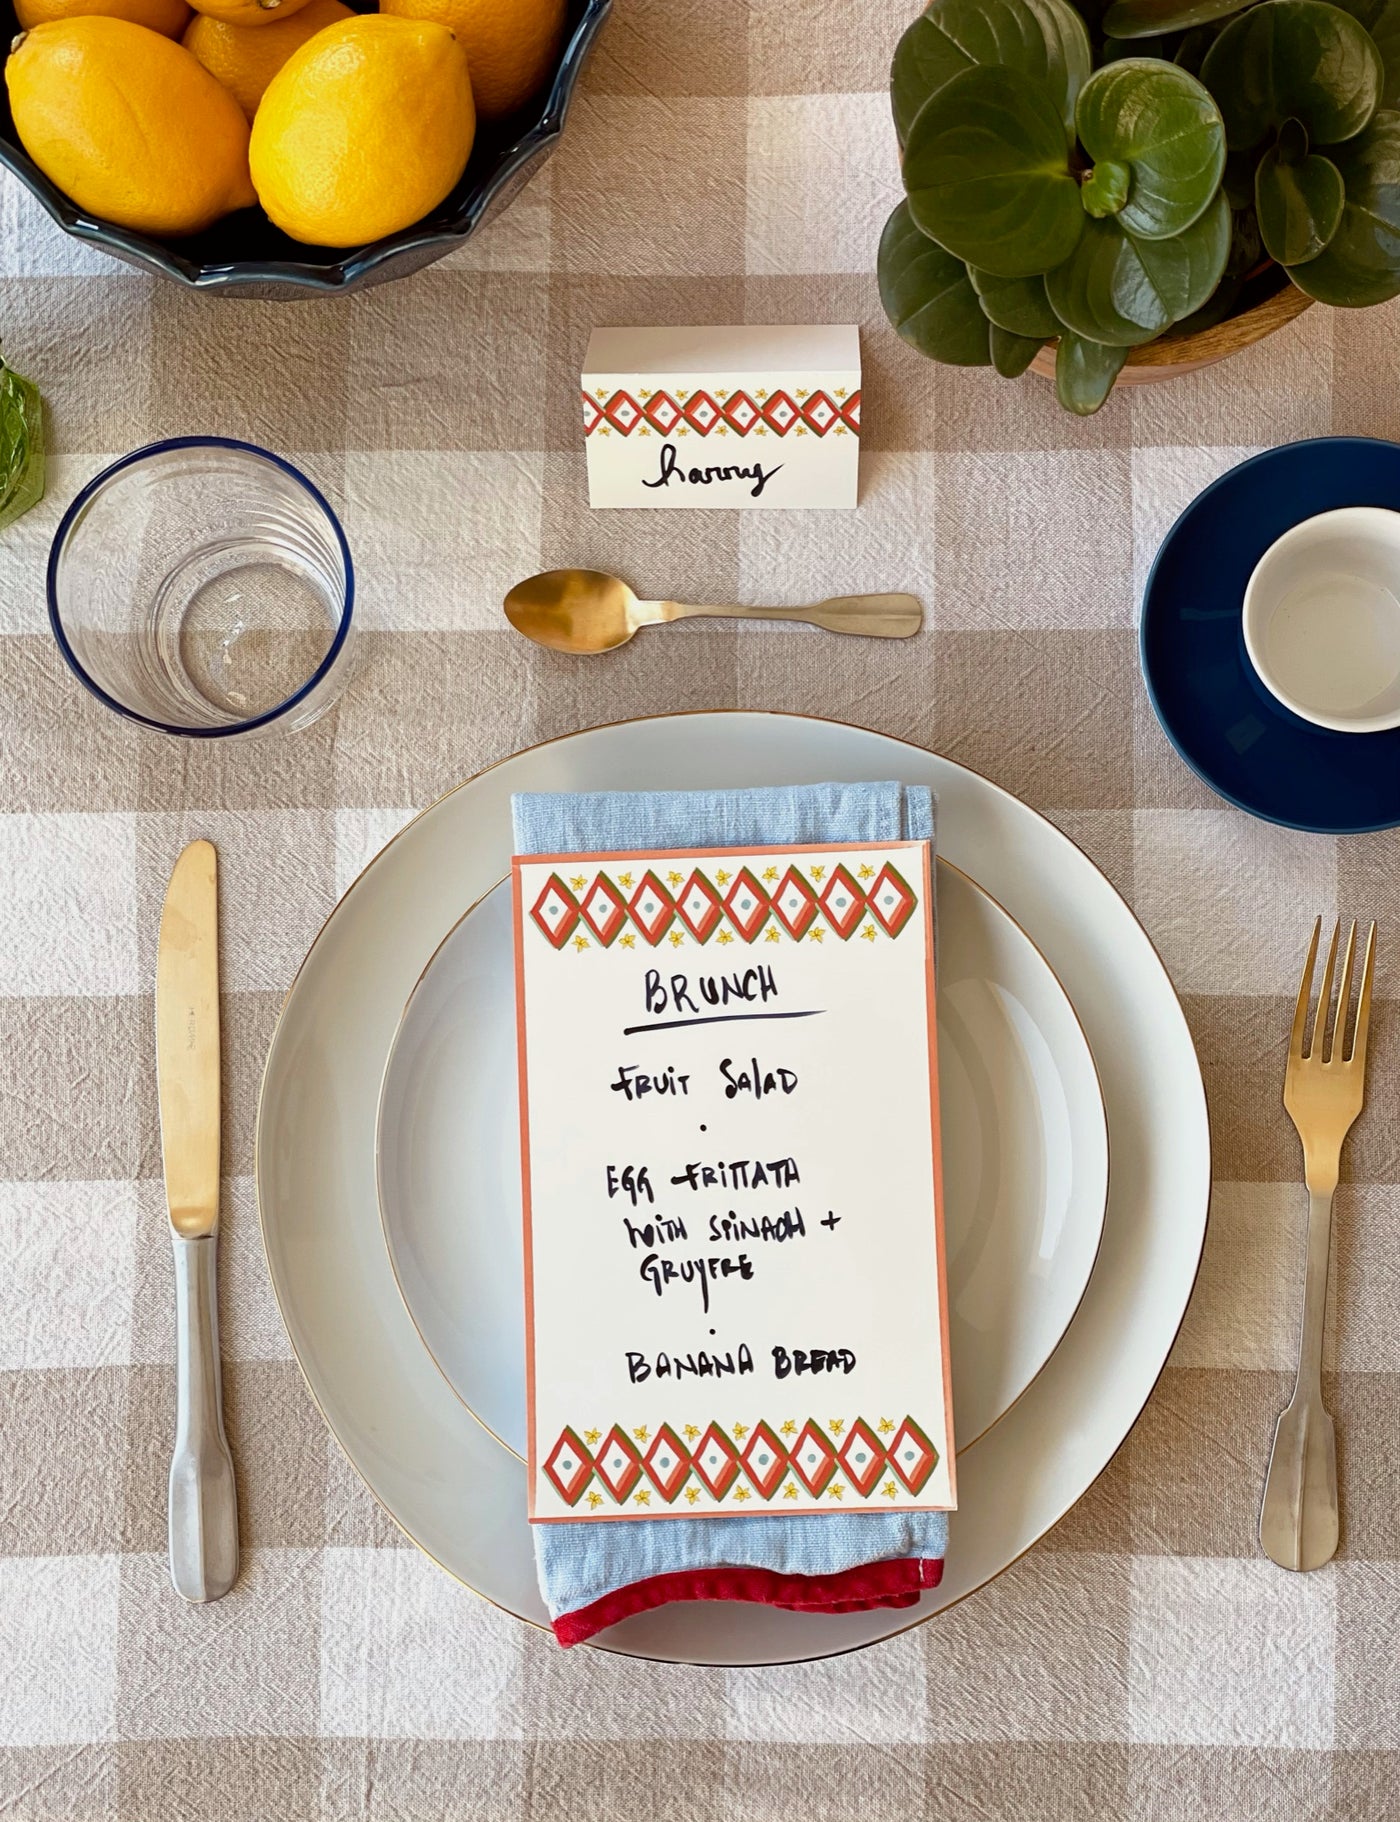 harry
BRUNCH
FRUIT SALAD
•
EGG FRITTATA
WITH SPINACH +
GRUYERE
•
BANANA BREAD